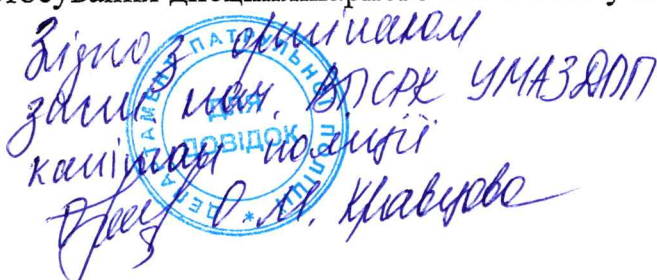 дисциплінарного
Згідно з оригіналом
заст. нач. ВПСРК УМАЗДПП
капітан поліції
О.М. Кравцова
ДЕПАРТАМЕНТ ПАТРУЛЬНОЇ ПОЛІЦІЇ *
ДЛЯ
ДОВІДОК